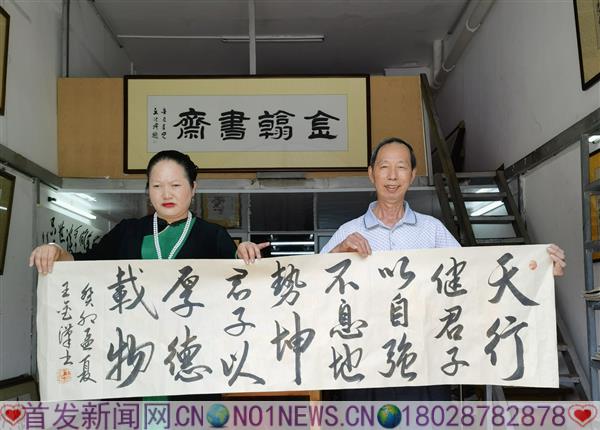 金翰書齋
天行
健君子
以自強
不息地
勢坤
君子以
厚德
載物
癸卯孟夏
王金漢书
首发新闻网.CN NO1NEWS.CN 18028782878